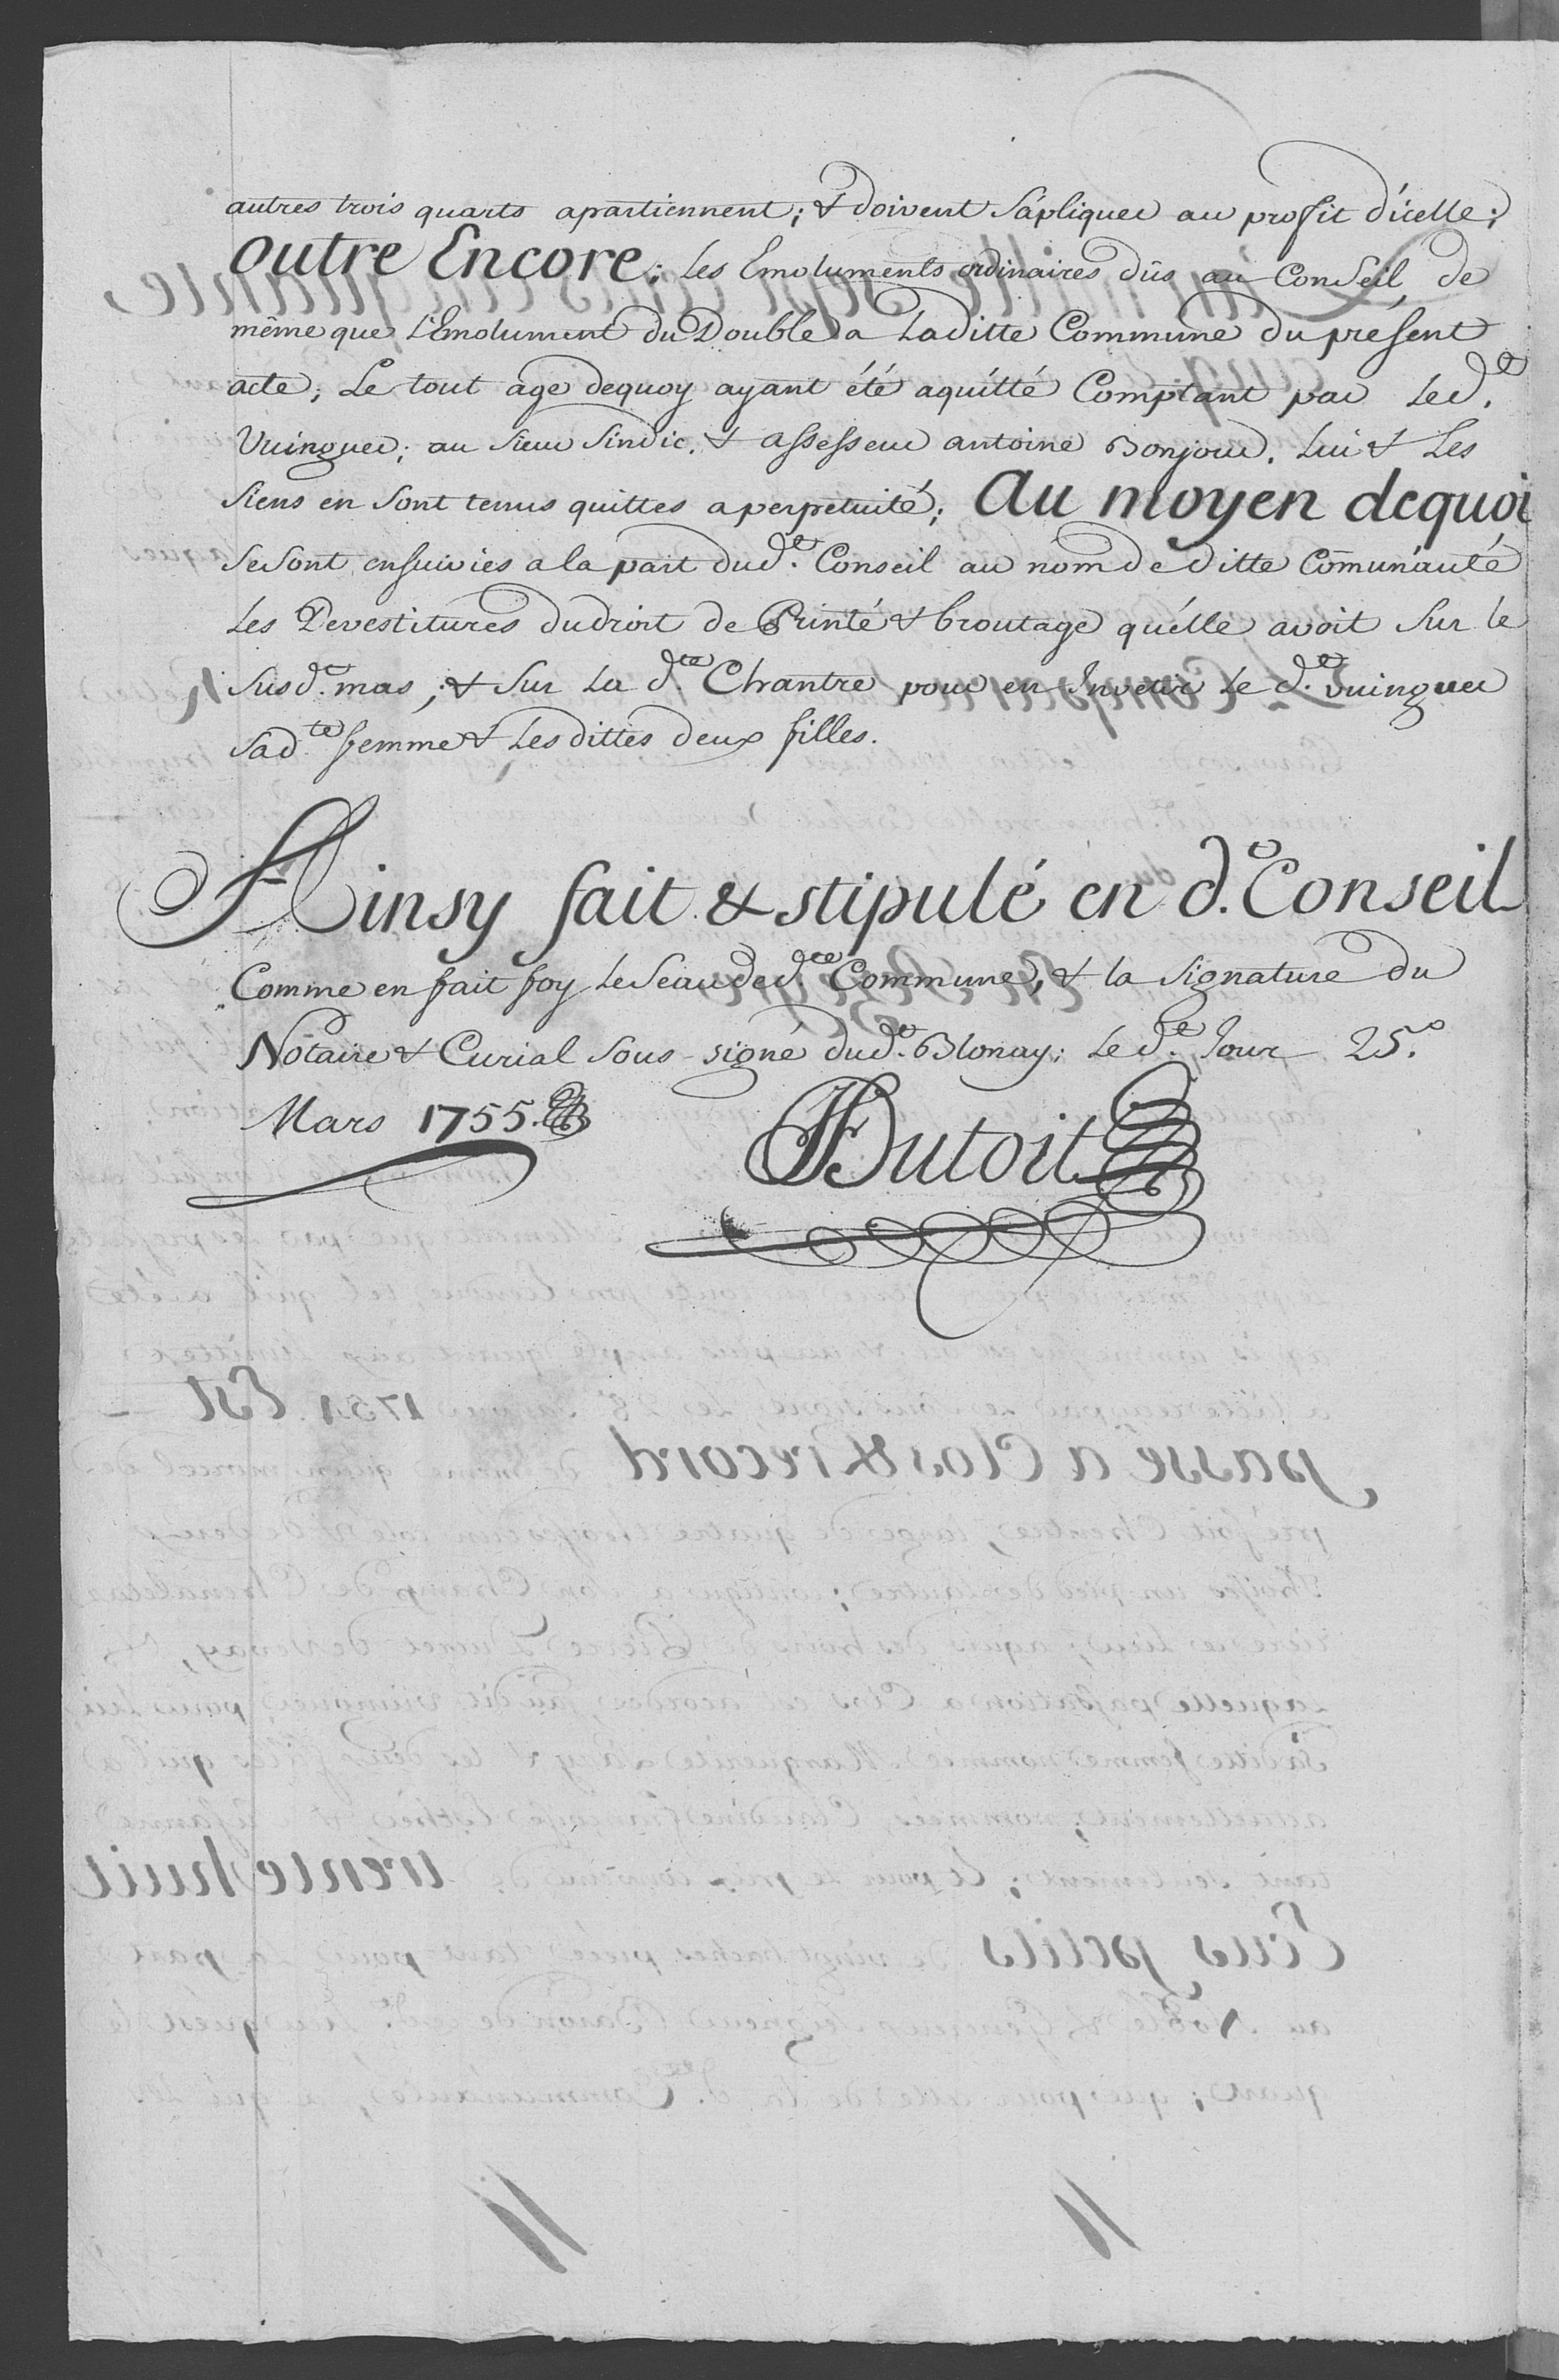 autres trois quarts apartiennent; & doivent s'apliquer au profit d'icelle;
Outre Encore; les Emoluments ordinaires dûs au Conseil, de
même que l'Emolument du Double a Laditte Commune du présent
acte; Le tout age dequoy ayant été aquitté Comptant par Led.t
Vuinguer; au sieur Sindic. & assesseur antoine Bonjour. Lui & Les
siens en sont tenus quittes a perpetuité; Au moyen dequoi
se sont ensuivies a la part dud.t Conseil au nom de ditte Com̄unauté
Les Devestitures du droit de Printé & broutage qu'elle avoit sur le
susd.t mas; & sur La d.te Chantre pour en Invetir Le d.t Vuinguer
Sad.te femme & Les dittes deux filles.
Ainsy fait & stipulé en d.t Conseil
Comme en fait foy Le Seau de d.te Commune, & la signature du
Notaire & Curial sous-signé dud.t Blonay; Le d.t Jour 25.e
Mars 1755.
Dutoit